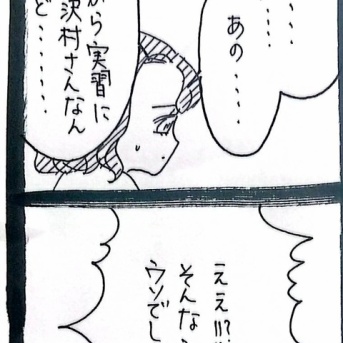 ‥‥
‥‥
あの‥‥‥
から実習に
沢村さんなん
ど‥‥‥‥
ええ!!?
そんな
ウソでし